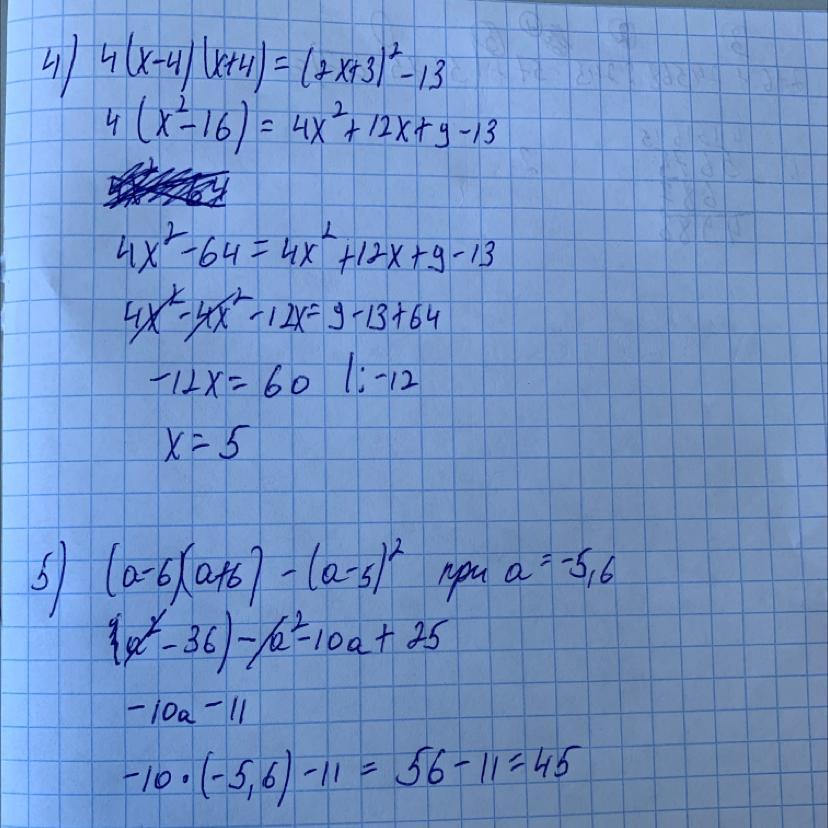 4) 4(x-4)(x+4) = (2x+3)² - 13
4(x² - 16) = 4x² + 12x + 9 - 13
4x² - 64 = 4x² + 12x + 9 - 13
4x² - 4x² - 12x = 9 - 13 + 64
-12x = 60 |: -12
x = 5
5) (a-6)(a+6) - (a-5)² при a = -5,6
(a² - 36) - a² - 10a + 25
-10a - 11
-10 · (-5,6) - 11 = 56 - 11 = 45